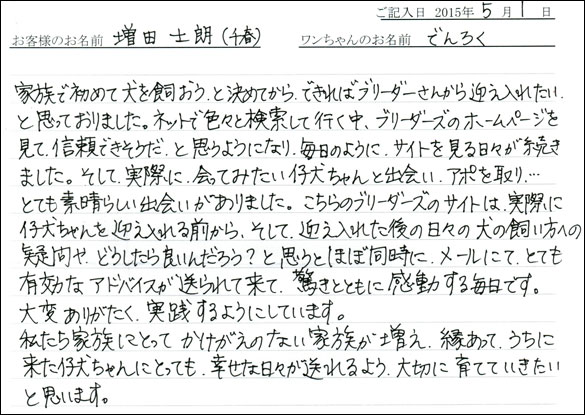 ご記入日 2015年 5月 1日
お客様のお名前 増田 士朗(千春) ワンちゃんのお名前 でんろく
家族で初めて犬を飼おう、と決めてから、できればブリーダーさんから迎え入れたい、
と思っておりました。ネットで色々と検索して行く中、ブリーダーズのホームページを
見て、信頼できそうだ、と思うようになり、毎日のように、サイトを見る日々が続き
ました。そして、実際に、会ってみたい仔犬ちゃんと出会い、アポを取り、…
とても素晴らしい出会いがありました。こちらのブリーダーズのサイトは、実際に
仔犬ちゃんを迎え入れる前から、そして、迎え入れた後の日々の犬の飼い方への
疑問や、どうしたら良いんだろう?と思うとほぼ同時に、メールにて、とても
有効なアドバイスが送られて来て、驚きとともに感動する毎日です。
大変ありがたく、実践するようにしています。
私たち家族にとってかけがえのない家族が増え、縁あって、うちに
来た仔犬ちゃんにとっても、幸せな日々が送れるよう、大切に育てていきたい
と思います。